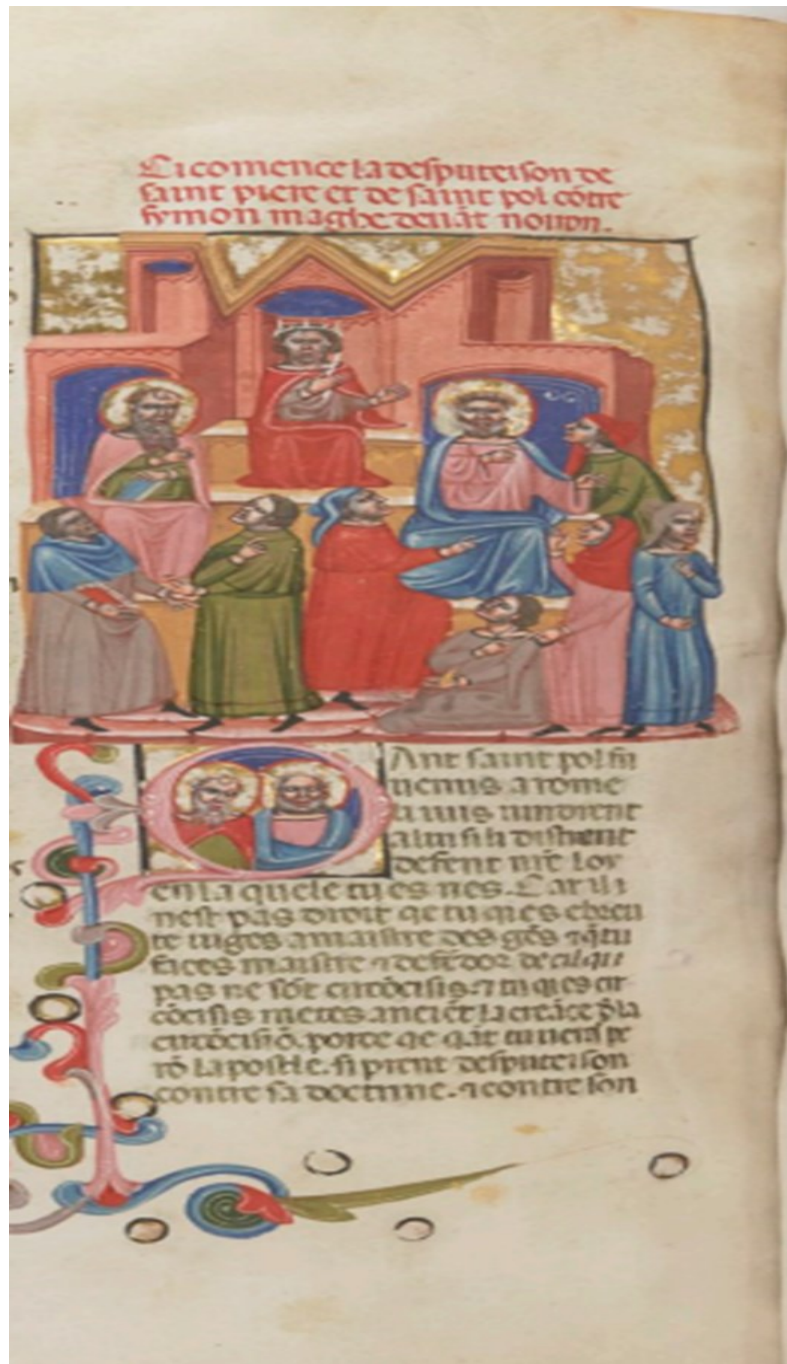 Ci comence la desputeison de
saint piere et de saint pol cōtre
symon maghe deuāt noiron.
Ant saint pol fu
uenus a rome
li iuis uindrent
a lui si li distrent
defent nr̄e loy
en la quele tu es nes. Car il
nest pas droit qe tu qi es ebreu
te iuges a maistre des gēs ⁊
faces maistre ⁊ defēdor de
pas ne sōt circōcisis. ⁊ tu qi es cir
cōcisis metes la creāce
circōcisiō. porce qe qāt tu
ro lapostle. si prent desputeison
contre sa doctrine. ⁊ contre son